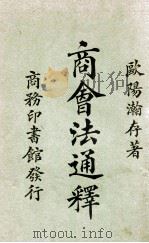 歐陽瀚存著
商會法通釋
商務印書館發行
www.mtoou.info